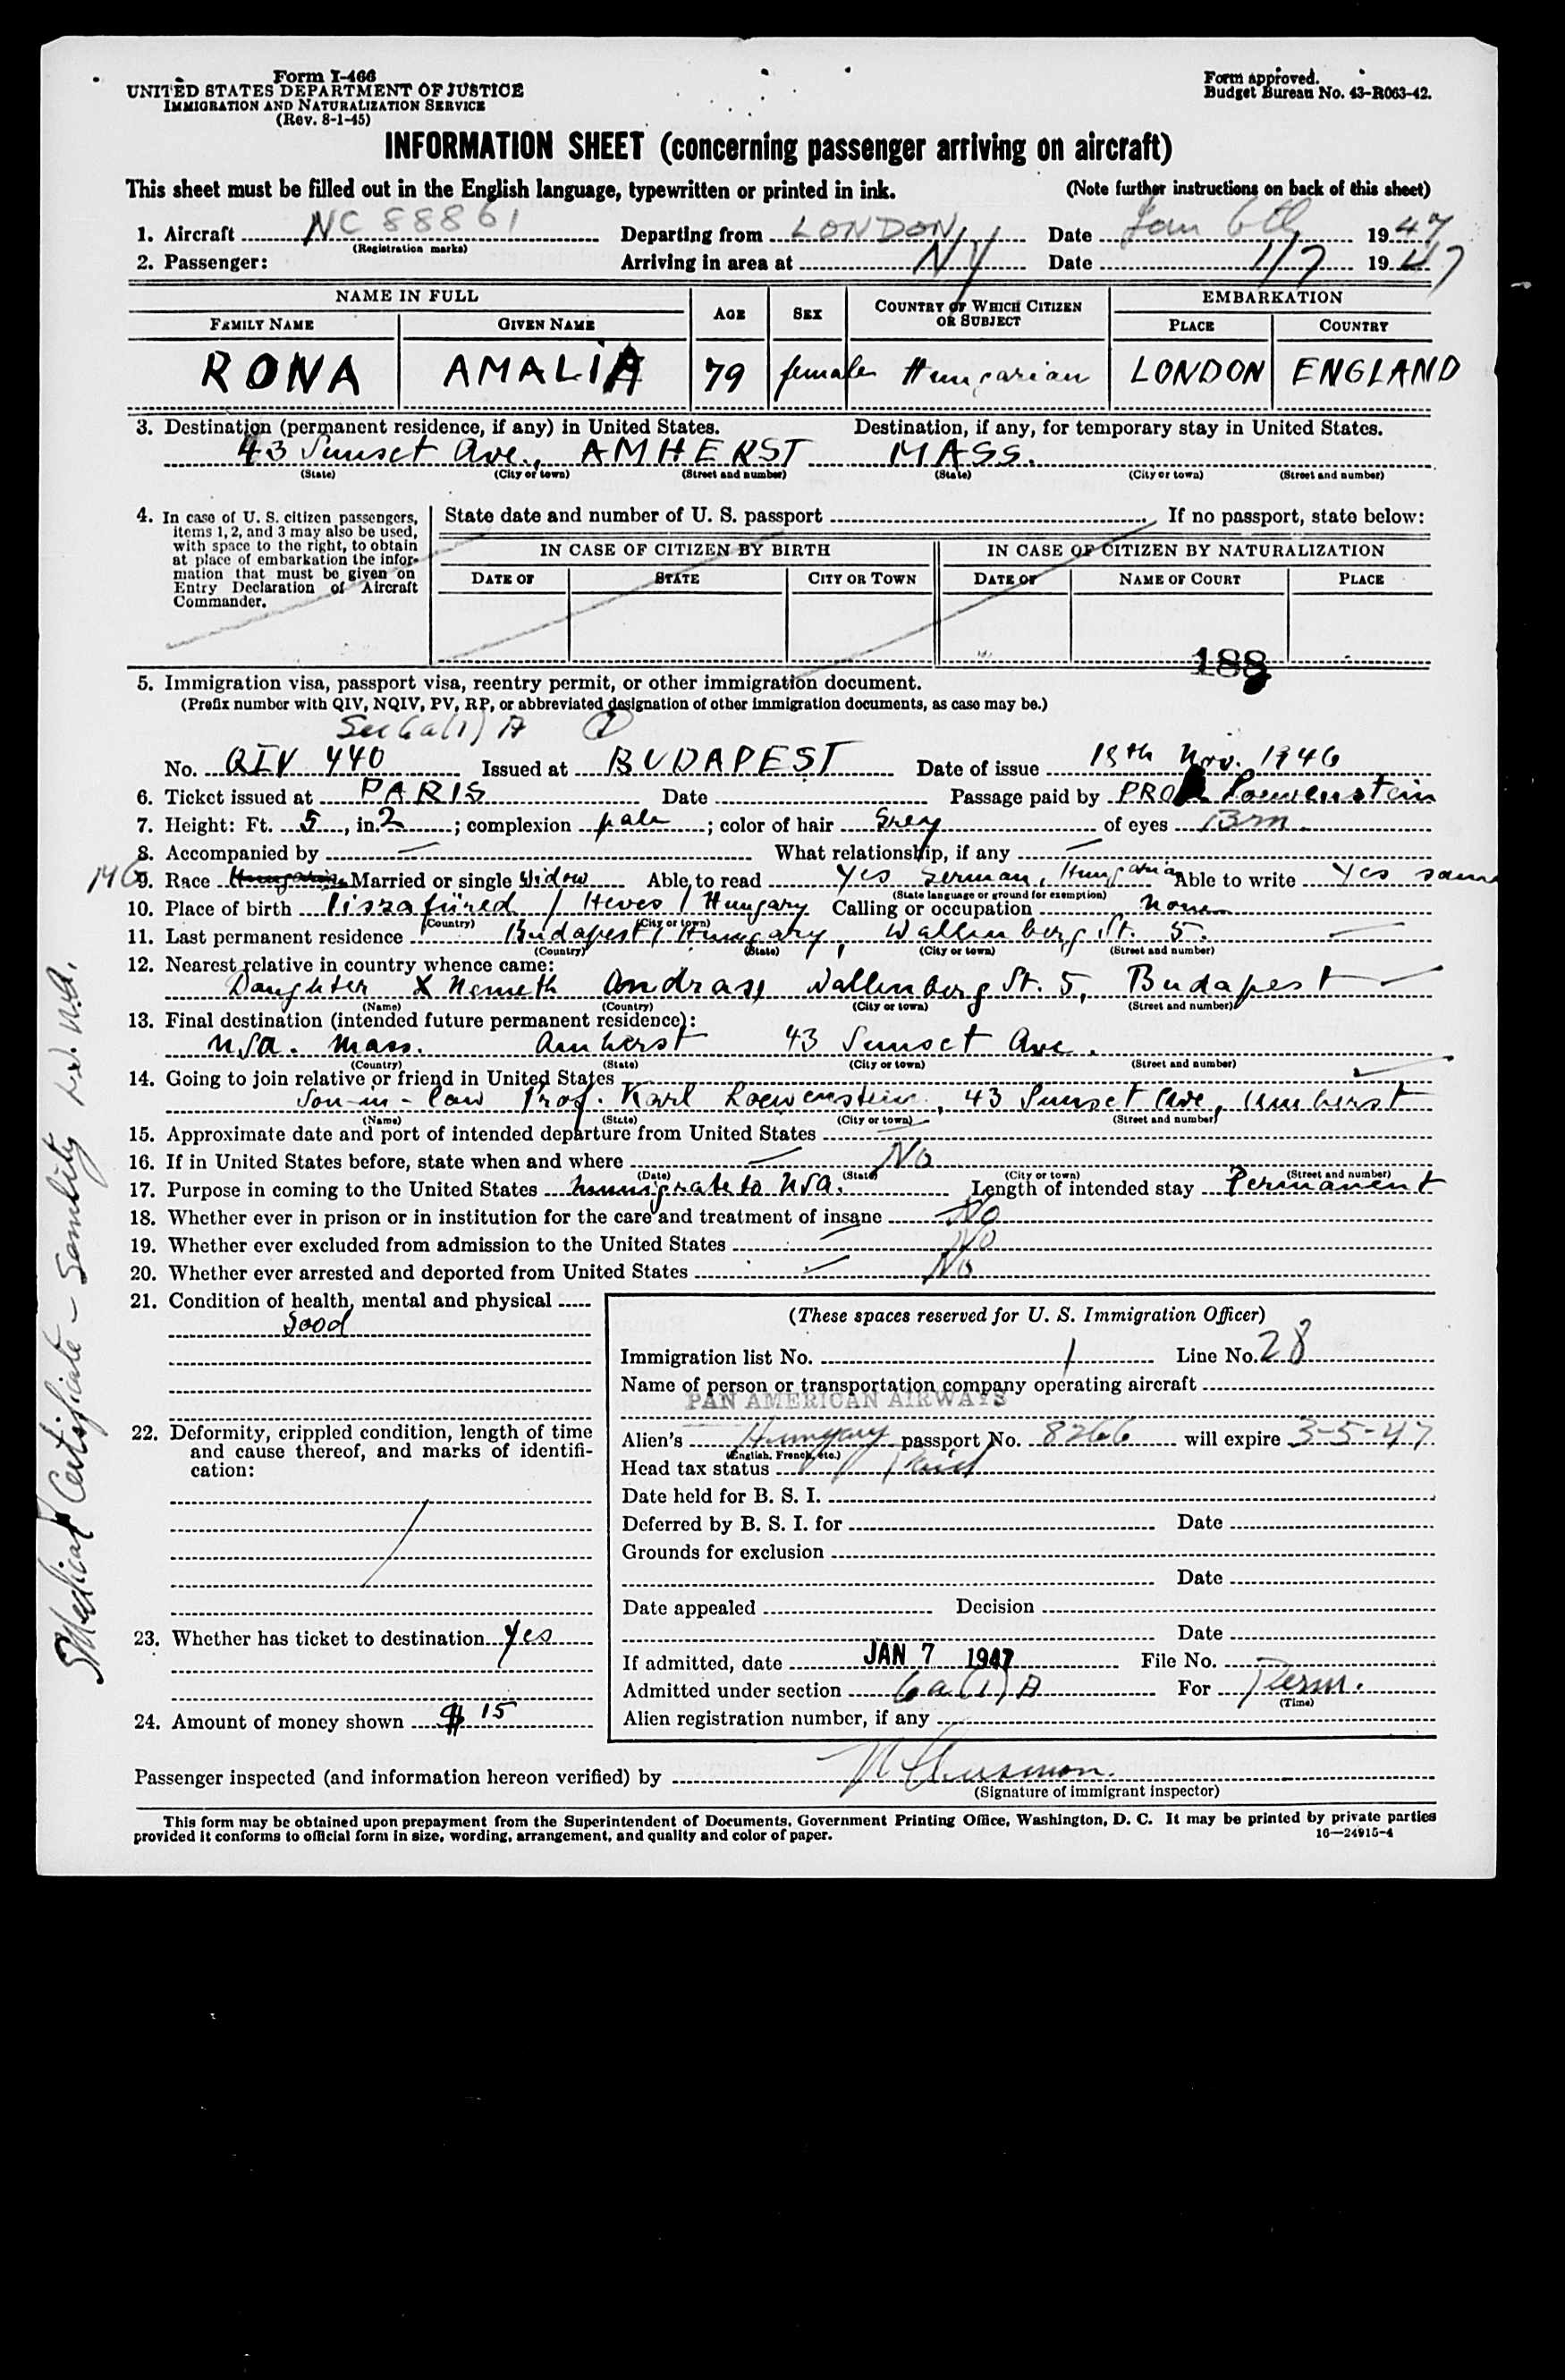 Form I-466
UNITED STATES DEPARTMENT OF JUSTICE
IMMIGRATION AND NATURALIZATION SERVICE
(Rev. 8-1-45)
Form approved.
Budget Bureau No. 43-R063-42.
INFORMATION SHEET (concerning passenger arriving on aircraft)
This sheet must be filled out in the English language, typewritten or printed in ink. (Note further instructions on back of this sheet)
1. Aircraft NC 88861 Departing from LONDON Date Jan 6th 1947
(Registration marks)
2. Passenger: Arriving in area at NY Date 1/7 1947
NAME IN FULL AGE SEX COUNTRY OF WHICH CITIZEN OR SUBJECT EMBARKATION
FAMILY NAME GIVEN NAME PLACE COUNTRY
RONA AMALIA 79 female Hungarian LONDON ENGLAND
3. Destination (permanent residence, if any) in United States. Destination, if any, for temporary stay in United States.
43 Sunset Ave., AMHERST MASS.
(State) (City or town) (Street and number) (State) (City or town) (Street and number)
4. In case of U. S. citizen passengers, items 1, 2, and 3 may also be used, with space to the right, to obtain at place of embarkation the information that must be given on Entry Declaration of Aircraft Commander.
State date and number of U. S. passport If no passport, state below:
IN CASE OF CITIZEN BY BIRTH IN CASE OF CITIZEN BY NATURALIZATION
DATE OF STATE CITY OR TOWN DATE OF NAME OF COURT PLACE
188
5. Immigration visa, passport visa, reentry permit, or other immigration document.
(Prefix number with QIV, NQIV, PV, RP, or abbreviated designation of other immigration documents, as case may be.)
Sec 6a(1) A
No. QIV 440 Issued at BUDAPEST Date of issue 18th Nov. 1946
6. Ticket issued at PARIS Date Passage paid by PROF. Loewenstein
7. Height: Ft. 5, in. 2; complexion pale; color of hair Grey of eyes Brn.
8. Accompanied by — What relationship, if any —
9. Race Hungarian Married or single Widow Able to read Yes German, Hungarian Able to write Yes same
(State language or ground for exemption)
10. Place of birth Tiszafüred / Heves / Hungary Calling or occupation None
(Country) (City or town)
11. Last permanent residence Budapest / Hungary, Wallenberg St. 5.
(Country) (State) (City or town) (Street and number)
12. Nearest relative in country whence came:
Daughter X Nemeth Andrass, Wallenberg St. 5, Budapest
(Name) (Country) (City or town) (Street and number)
13. Final destination (intended future permanent residence):
USA. Mass. Amherst 43 Sunset Ave.
(Country) (State) (City or town) (Street and number)
14. Going to join relative or friend in United States
Son-in-law Prof. Karl Loewenstein, 43 Sunset Ave, Amherst
(Name) (State) (City or town) (Street and number)
15. Approximate date and port of intended departure from United States
16. If in United States before, state when and where No
(Date) (State) (City or town) (Street and number)
17. Purpose in coming to the United States Immigrate to USA. Length of intended stay Permanent
18. Whether ever in prison or in institution for the care and treatment of insane No
19. Whether ever excluded from admission to the United States No
20. Whether ever arrested and deported from United States No
21. Condition of health, mental and physical
Good
22. Deformity, crippled condition, length of time and cause thereof, and marks of identification:
23. Whether has ticket to destination Yes
24. Amount of money shown $ 15
(These spaces reserved for U. S. Immigration Officer)
Immigration list No. 1 Line No. 28
Name of person or transportation company operating aircraft
PAN AMERICAN AIRWAYS
Alien's Hungary passport No. 8266 will expire 3-5-47
(English, French, etc.)
Head tax status Paid
Date held for B. S. I.
Deferred by B. S. I. for Date
Grounds for exclusion
Date
Date appealed Decision
Date
If admitted, date JAN 7 1947 File No.
Admitted under section 6a(1) A For Perm.
(Time)
Alien registration number, if any
Passenger inspected (and information hereon verified) by
(Signature of immigrant inspector)
This form may be obtained upon prepayment from the Superintendent of Documents, Government Printing Office, Washington, D. C. It may be printed by private parties
provided it conforms to official form in size, wording, arrangement, and quality and color of paper. 16—24915-4
Medical Certificate - Senility